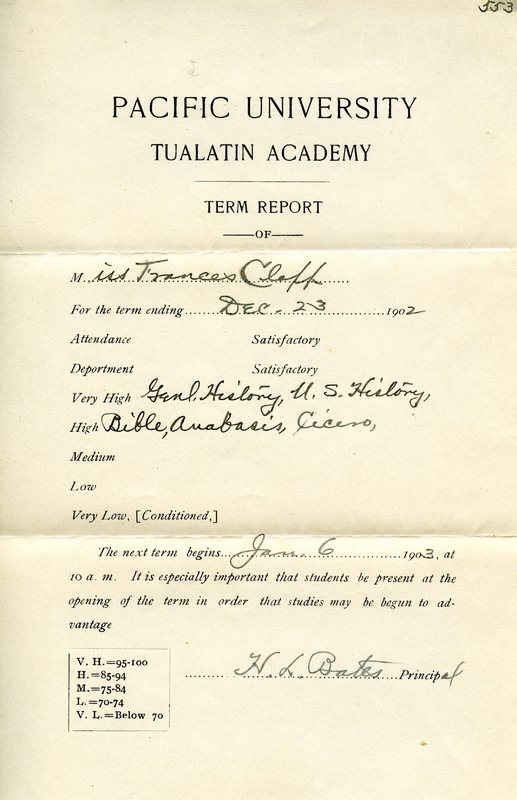 553
PACIFIC UNIVERSITY
TUALATIN ACADEMY
TERM REPORT
OF
Miss Frances Clapp
For the term ending Dec. 23 1902
Attendance Satisfactory
Deportment Satisfactory
Very High Genl. History, U. S. History,
High Bible, Anabasis, Cicero,
Medium
Low
Very Low, [Conditioned,]
The next term begins Jan. 6 1903, at
10 a. m. It is especially important that students be present at the
opening of the term in order that studies may be begun to ad-
vantage
H. L. Bates Principal
V. H.=95-100
H.=85-94
M.=75-84
L.=70-74
V. L.=Below 70